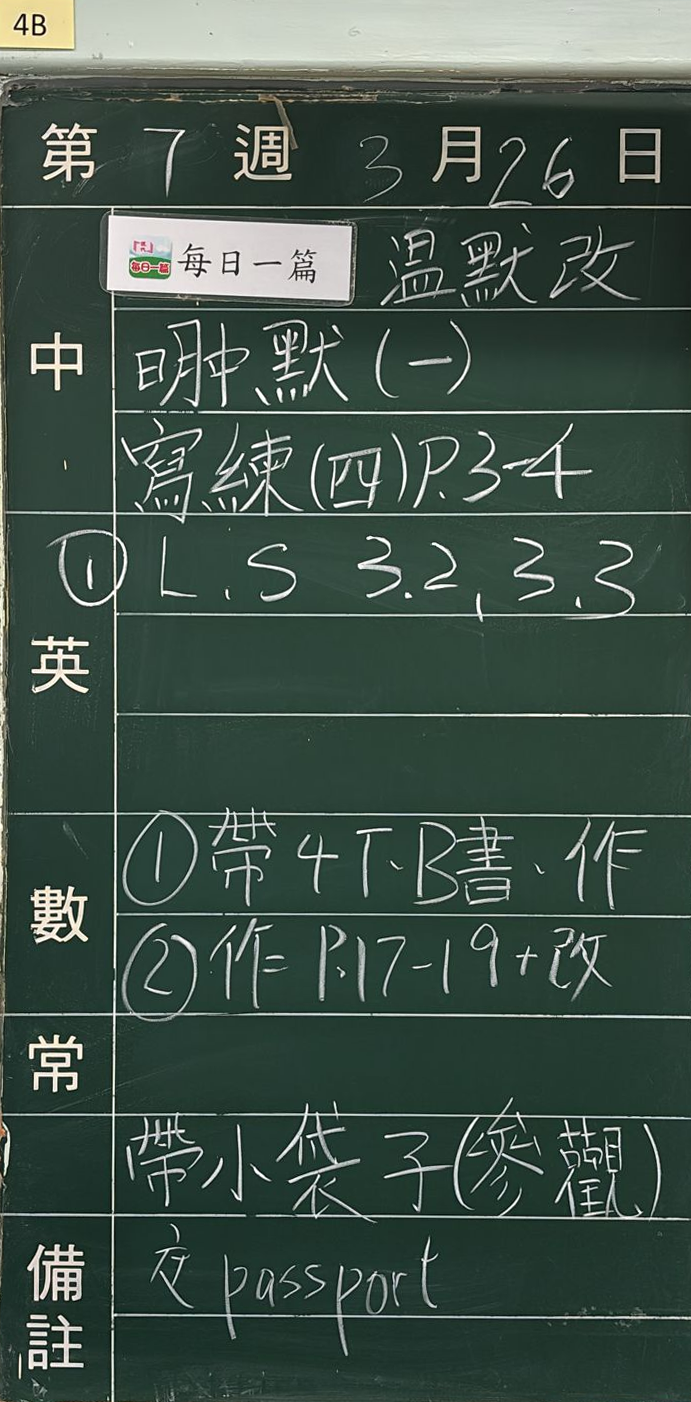 4B
第 7 週 3 月 26 日
中 每日一篇 温默改
明中默(一)
寫練(四)P.3-4
英 ① L.S 3.2, 3.3
數 ①帶4T.B書、作
②作 P.17-19+改
常
帶小袋子(參觀)
備註 交passport